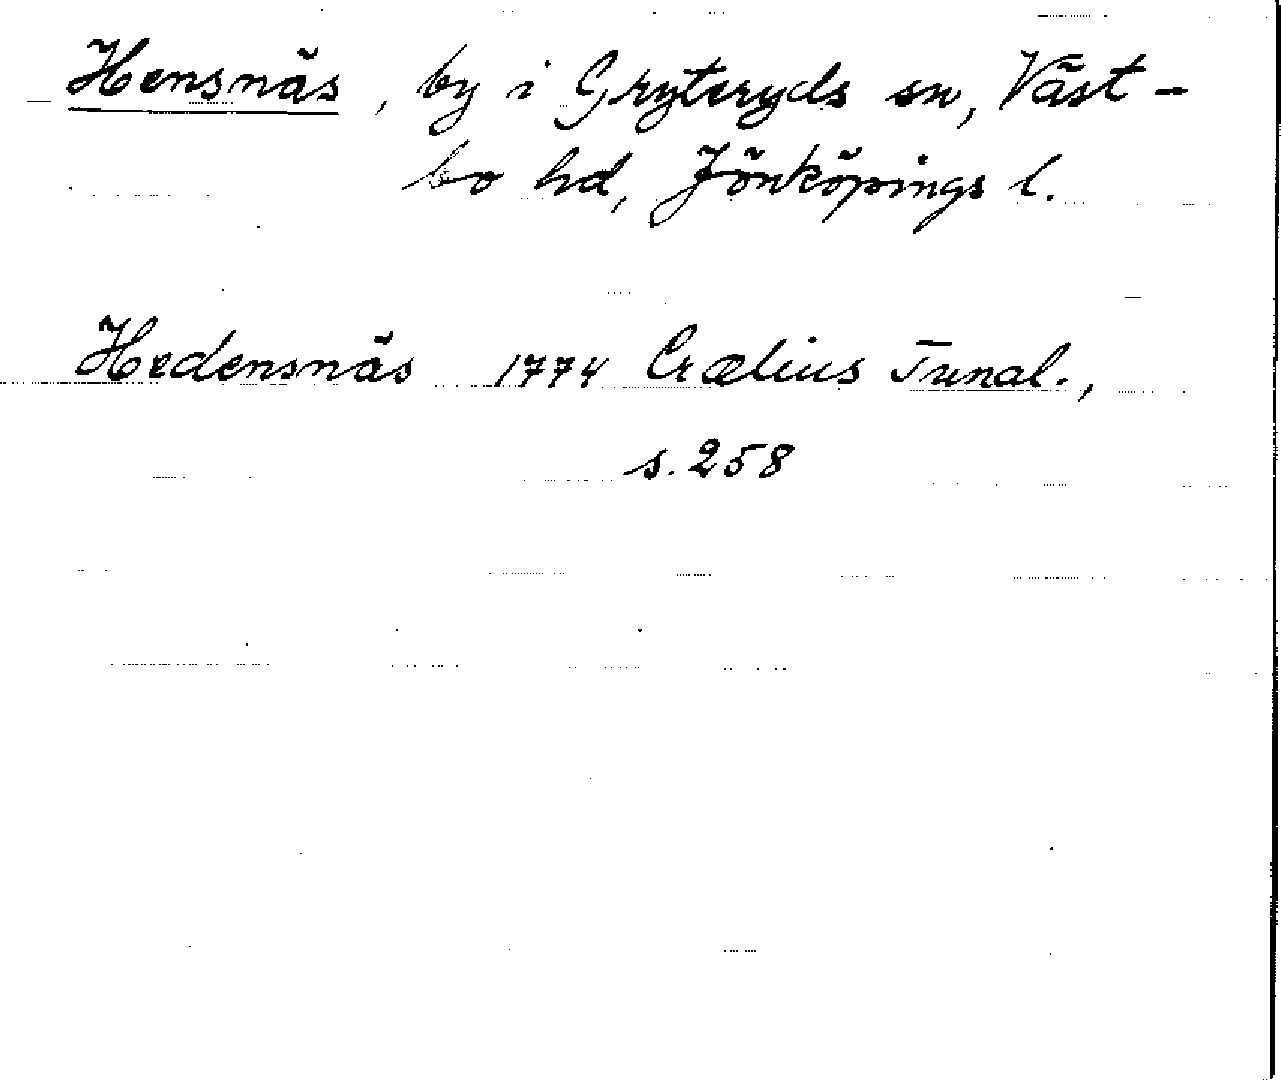 Hensnäs, by i Gryteryds sn, Väst-
bo hd, Jönköpings l.
Hedensnäs 1774 Crælius Tunal.,
s. 258